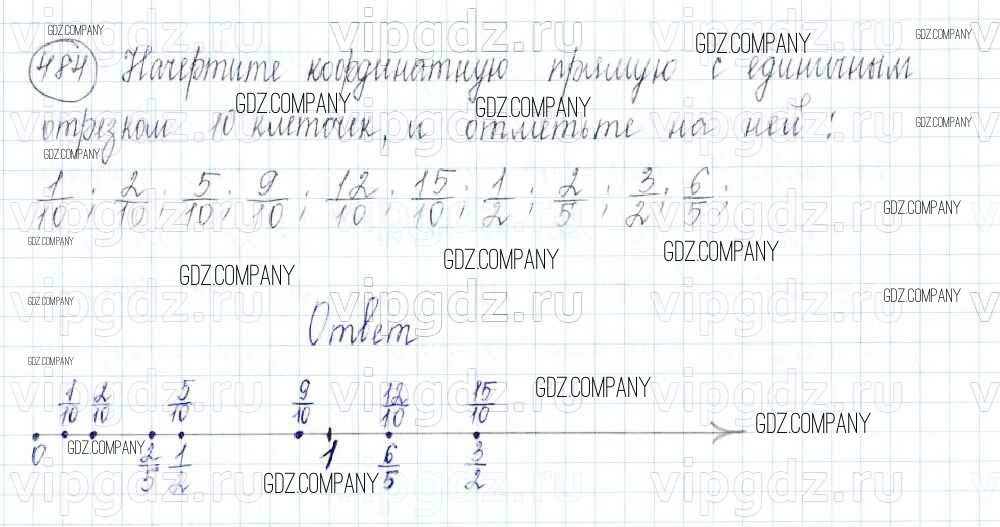 484 Начертите координатную прямую с единичным
отрезком 10 клеточек, и отметьте на ней:
1/10; 2/10; 5/10; 9/10; 12/10; 15/10; 1/2; 2/5; 3/2; 6/5;
Ответ
1/10 2/10 5/10 9/10 12/10 15/10
0 2/5 1/2 1 6/5 3/2
GDZ.COMPANY
vipgdz.ru